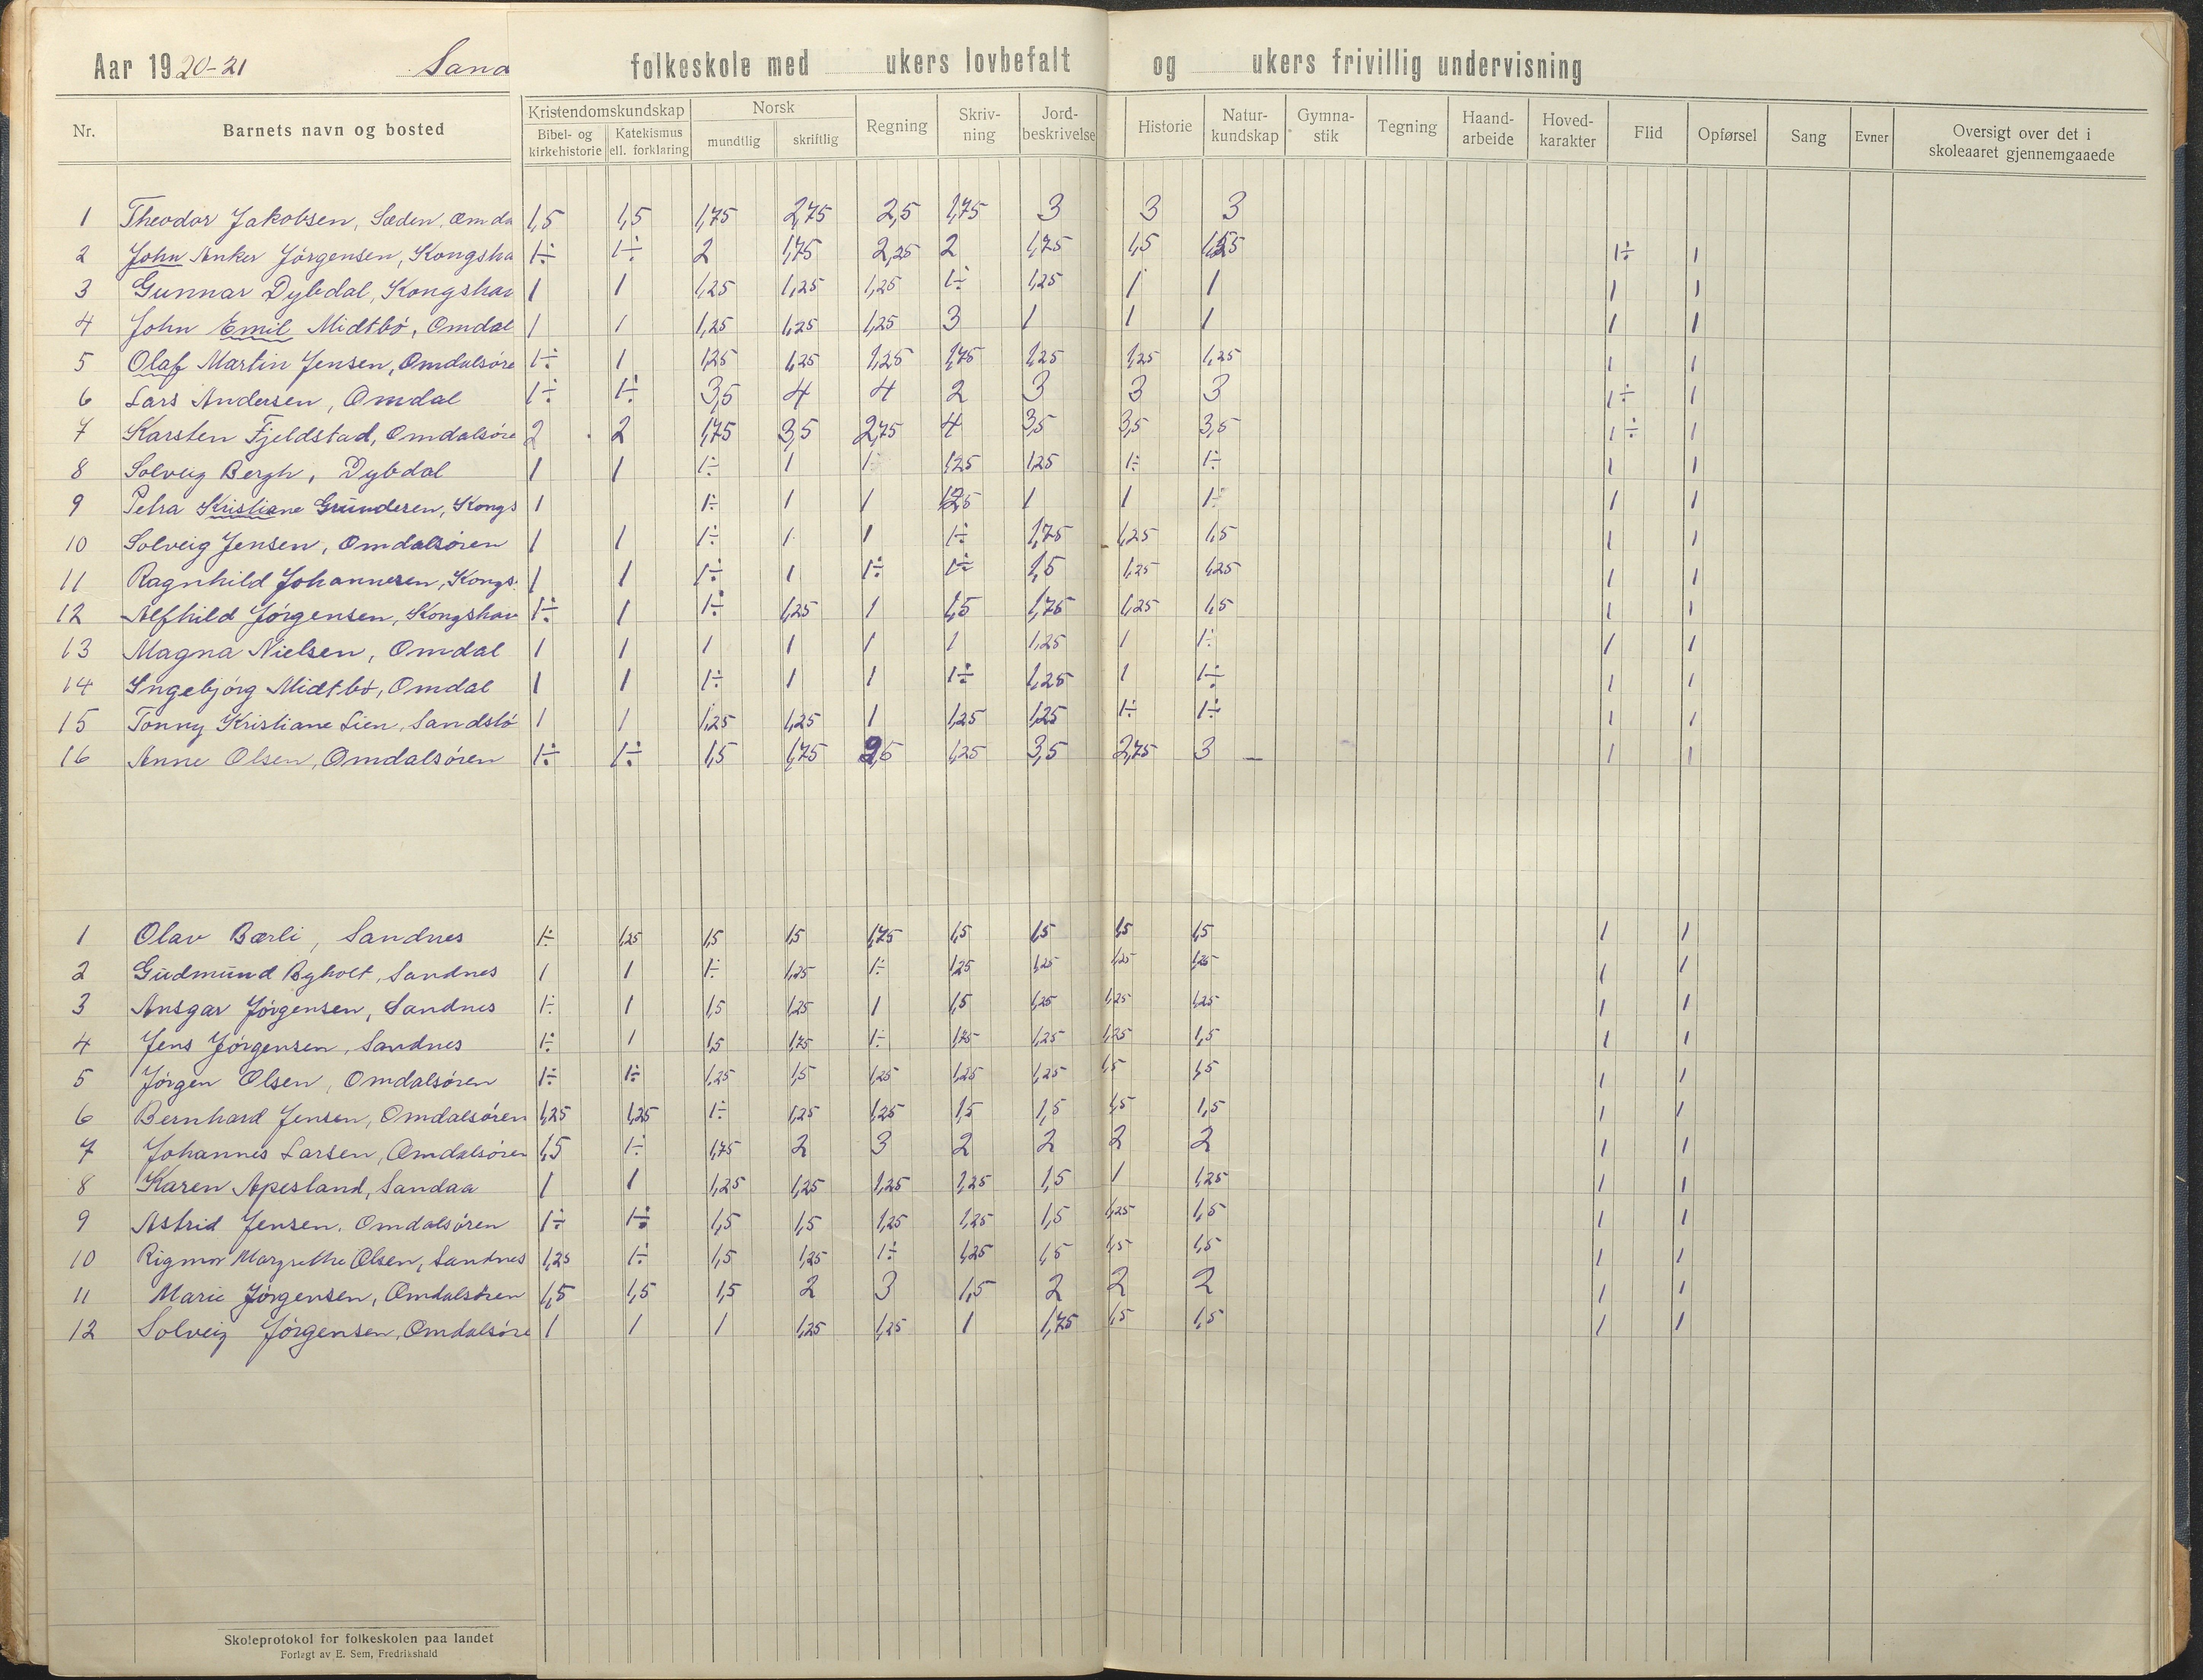 Aar 1920-21 Sand folkeskole med ukers lovbefalt og ukers frivillig undervisning
Nr. Barnets navn og bosted Kristendomskundskap Bibel- og kirkehistorie Katekismus ell. forklaring Norsk mundtlig skriftlig Regning Skriv-ning Jord-beskrivelse Historie Natur-kundskap Gymna-stik Tegning Haand-arbeide Hoved-karakter Flid Opførsel Sang Evner Oversigt over det i skoleaaret gjennemgaaede
1 Theodor Jakobsen, Sæden, Omda 1,5 1,5 1,75 2,75 2,5 1,75 3 3 3
2 John Anker Jørgensen, Kongsha 1÷ 1÷ 2 1,75 2,25 2 1,75 1,5 1÷ 1
3 Gunnar Dybdal, Kongshav 1 1 1,25 1,25 1,25 1÷ 1,25 1 1 1 1
4 John Emil Midtbø, Omdal 1 1 1,25 1,25 1,25 3 1 1 1 1 1
5 Olaf Martin Jensen, Omdalsøre 1÷ 1 1,25 1,25 1,25 1,75 1,25 1,25 1,25 1 1
6 Lars Andersen, Omdal 1÷ 1÷ 3,5 4 4 2 3 3 3 1÷ 1
7 Karsten Fjeldstad, Omdalsøre 2 2 1,75 3,5 2,75 4 3,5 3,5 3,5 1÷ 1
8 Solveig Bergh, Dybdal 1 1 1÷ 1 1÷ 1,25 1,25 1÷ 1÷ 1 1
9 Petra Kristiane Gundersen, Kongs 1 1÷ 1 1 1,25 1 1 1÷ 1 1
10 Solveig Jensen, Omdalsøren 1 1 1÷ 1 1 1÷ 1,75 1,25 1,5 1 1
11 Ragnhild Johannesen, Kongs 1 1 1÷ 1 1÷ 1÷ 1,5 1,25 1,25 1 1
12 Alfhild Jørgensen, Kongshav 1÷ 1 1÷ 1,25 1 1,5 1,75 1,25 1,5 1 1
13 Magna Nielsen, Omdal 1 1 1 1 1 1 1,25 1 1÷ 1 1
14 Ingebjørg Midtbø, Omdal 1 1 1÷ 1 1 1÷ 1,25 1 1÷ 1 1
15 Tonny Kristiane Lien, Sandstø 1 1 1,25 1,25 1 1,25 1,25 1÷ 1÷ 1 1
16 Anne Olsen, Omdalsøren 1÷ 1÷ 1,5 1,75 2,5 1,25 3,5 2,75 3 1 1
1 Olav Bærli, Sandnes 1÷ 1,25 1,5 1,5 1,75 1,5 1,5 1,5 1,5 1 1
2 Gudmund Byholt, Sandnes 1 1 1÷ 1,25 1÷ 1,25 1,25 1,25 1,25 1 1
3 Ansgar Jørgensen, Sandnes 1÷ 1 1,5 1,25 1 1,5 1,25 1,25 1,25 1 1
4 Jens Jørgensen, Sandnes 1÷ 1 1,5 1,75 1÷ 1,75 1,25 1,25 1,5 1 1
5 Jørgen Olsen, Omdalsøren 1÷ 1÷ 1,25 1,5 1,25 1,25 1,25 1,5 1,5 1 1
6 Bernhard Jensen, Omdalsøren 1,25 1,25 1÷ 1,25 1,25 1,5 1,5 1,5 1,5 1 1
7 Johannes Larsen, Omdalsøren 1,5 1÷ 1,75 2 3 2 2 2 2 1 1
8 Karen Apesland, Sandaa 1 1 1,25 1,25 1,25 1,25 1,5 1 1,25 1 1
9 Astrid Jensen, Omdalsøren 1÷ 1÷ 1,5 1,5 1,25 1,25 1,5 1,25 1,5 1 1
10 Rigmor Margrethe Olsen, Sandnes 1,25 1÷ 1,5 1,25 1÷ 1,25 1,5 1,5 1,5 1 1
11 Marie Jørgensen, Omdalsøren 1,5 1,5 1,5 2 3 1,5 2 2 2 1 1
12 Solveig Jørgensen, Omdalsøre 1 1 1 1,25 1,25 1 1,75 1,5 1,5 1 1
Skoleprotokol for folkeskolen paa landet
Forlagt av E. Sem, Fredrikshald